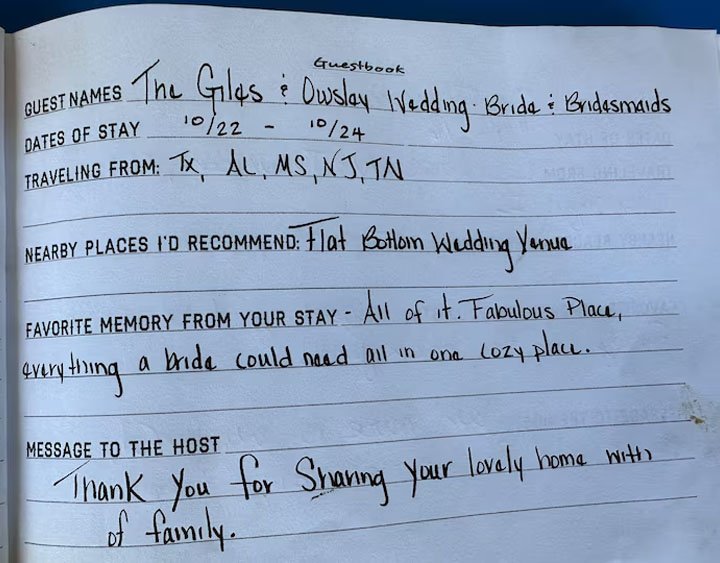 Guestbook
GUEST NAMES The Giles & Owsley Wedding. Bride & Bridesmaids
DATES OF STAY 10/22 - 10/24
TRAVELING FROM: TX, AL, MS, NJ, TN
NEARBY PLACES I'D RECOMMEND: Flat Bottom Wedding Venue
FAVORITE MEMORY FROM YOUR STAY - All of it. Fabulous Place,
everything a bride could need all in one cozy place.
MESSAGE TO THE HOST
Thank you for Sharing your lovely home with
of family.